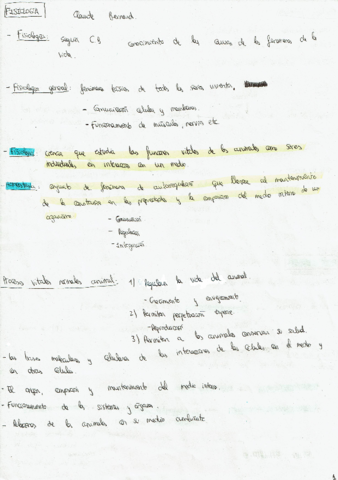 FISIOLOGÍA
Claude Bernard
- Fisiología: según C.B conocimiento de las causas de los fenómenos de la
vida.
- Fisiología general: fenómenos básicos de todos los seres vivientes.
- Comunicación células y membrana.
- Funcionamiento de músculos, nervios etc
- Fisiología: ciencia que estudia las funciones vitales de los animales como seres
individuales, en interacción con un medio.
conjunto de fenómenos de autorregulación que llevan al mantenimiento
de la constancia en las propiedades y la composición del medio interno de un
organismo
- Comunicación
- Regulación
- Integración
Procesos vitales normales animal: 1) Regulan la vida del animal
- Crecimiento y
2) Permiten perpetuación especie
- Reproducción
3) Permiten a los animales conservar su salud
- Las bases moleculares y celulares de las interacciones de las células en el medio y
en otras células.
- El origen, composición y mantenimiento del medio interno.
- Funcionamiento de los sistemas y órganos.
- de los animales en su medio ambiente
1